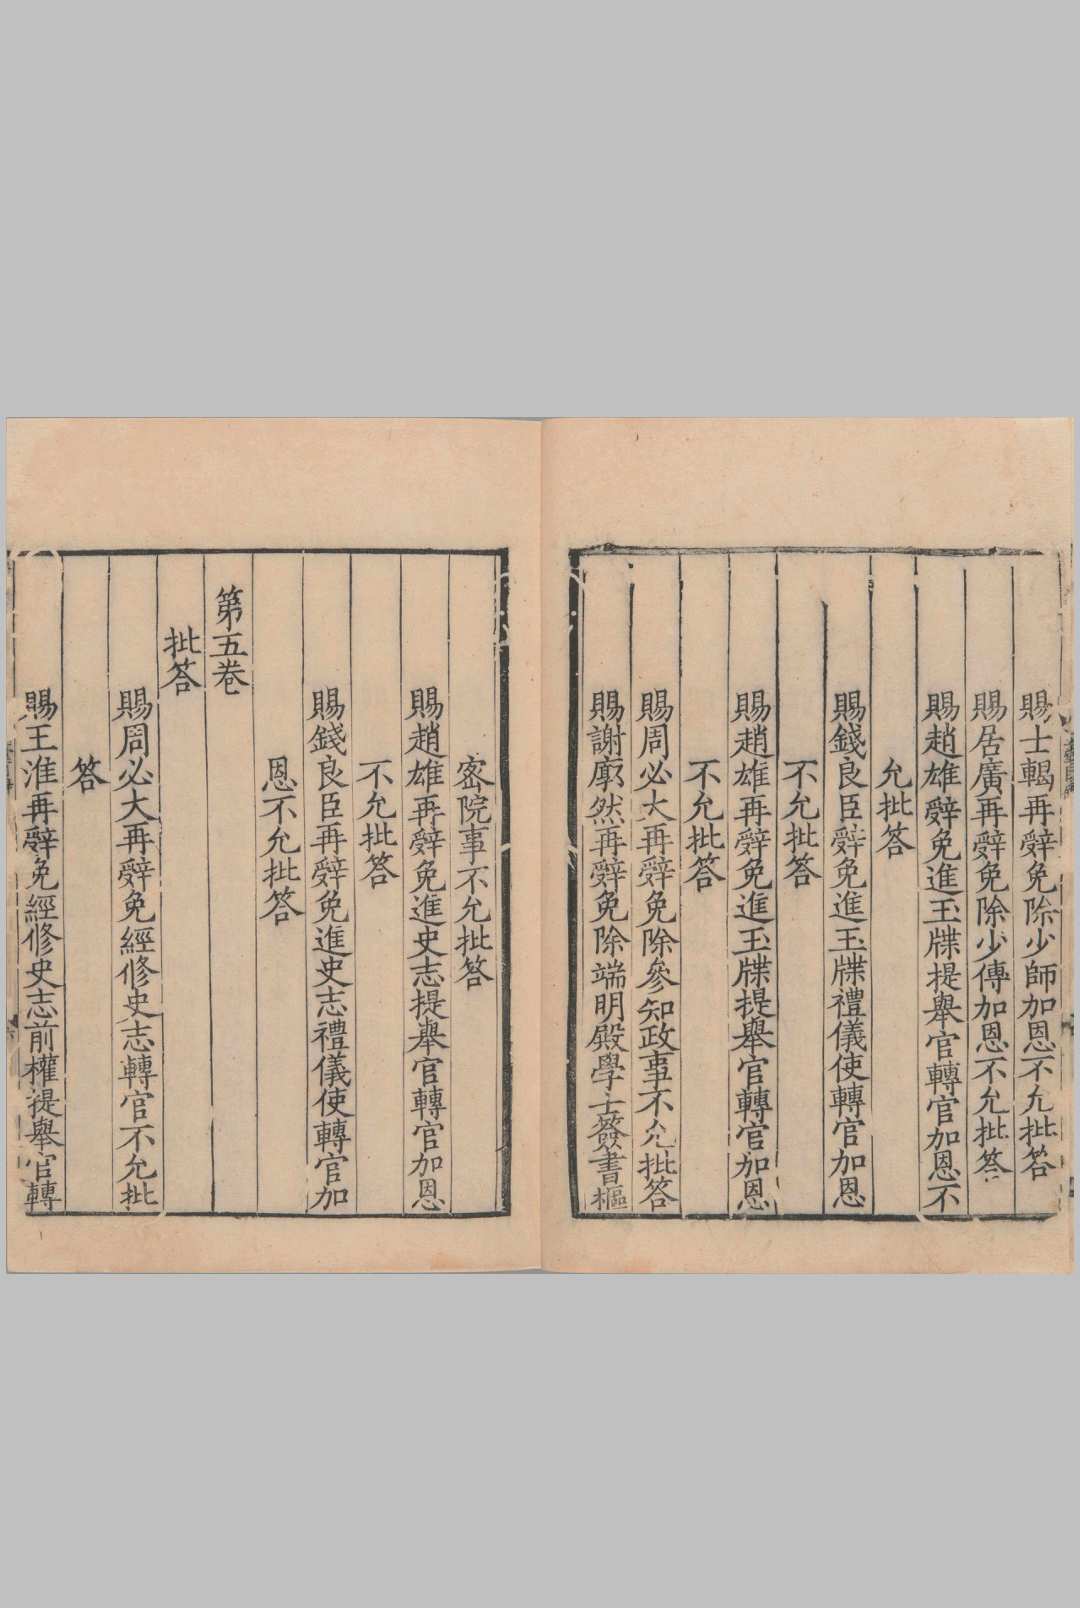 賜士輵再辭免除少師加恩不允批答
賜居廣再辭免除少傳加恩不允批答
賜趙雄辭免進玉牒提舉官轉官加恩不
允批答
賜錢良臣辭免進玉牒禮儀使轉官加恩
不允批答
賜趙雄再辭免進玉牒提舉官轉官加恩
不允批答
賜周必大再辭免除參知政事不允批答
賜謝廓然再辭免除端明殿學士簽書樞
密院事不允批答
賜趙雄再辭免進史志提舉官轉官加恩
不允批答
賜錢良臣再辭免進史志禮儀使轉官加
恩不允批答
第五卷
批答
賜周必大再辭免經修史志轉官不允批
答
賜王淮再辭免經修史志前權提舉官轉